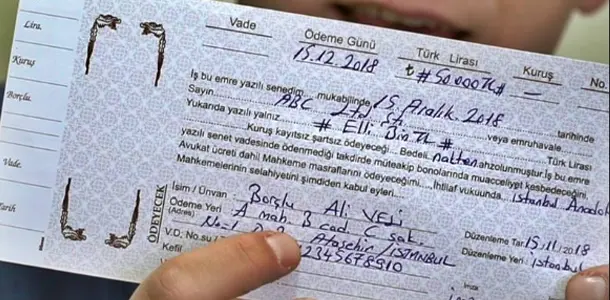 Lira.
Kuruş
Borçlu.
Vade.
Tarih
Vade Ödeme Günü Türk Lirası Kuruş No.
15.12.2018 ₺ # 50000TL# —
İş bu emre yazılı senedim ... mukabilinde 15 Aralık 2018 tarihinde
Sayın ABC Ltd. Şti. veya emruhavale
Yukarıda yazılı yalnız # Elli Bin TL # Türk Lirası
Kuruş kayıtsız şartsız ödeyeceğ... Bedeli nakten ahzolunmuştur. İş bu emre
yazılı senet vadesinde ödenmediği takdirde müteakip bonolarında muacceliyet kesbedeceğini,
Avukat ücreti dahil Mahkeme masraflarını ödeyeceğimi ... İhtilaf vukuunda, İstanbul Anadolu
Mahkemelerinin selahiyetini şimdiden kabul eyleri....
ÖDEYECEK
İsim / Ünvan : Borçlu Ali VELİ
Ödeme Yeri : A mah. B cad. C sok.
(Adres) No:1 Ataşehir İSTANBUL
V.D. No.su / 12345678910
Kefil
Düzenleme Tar. 15/11/2018
Düzenleme Yeri : İstanbul
İmza